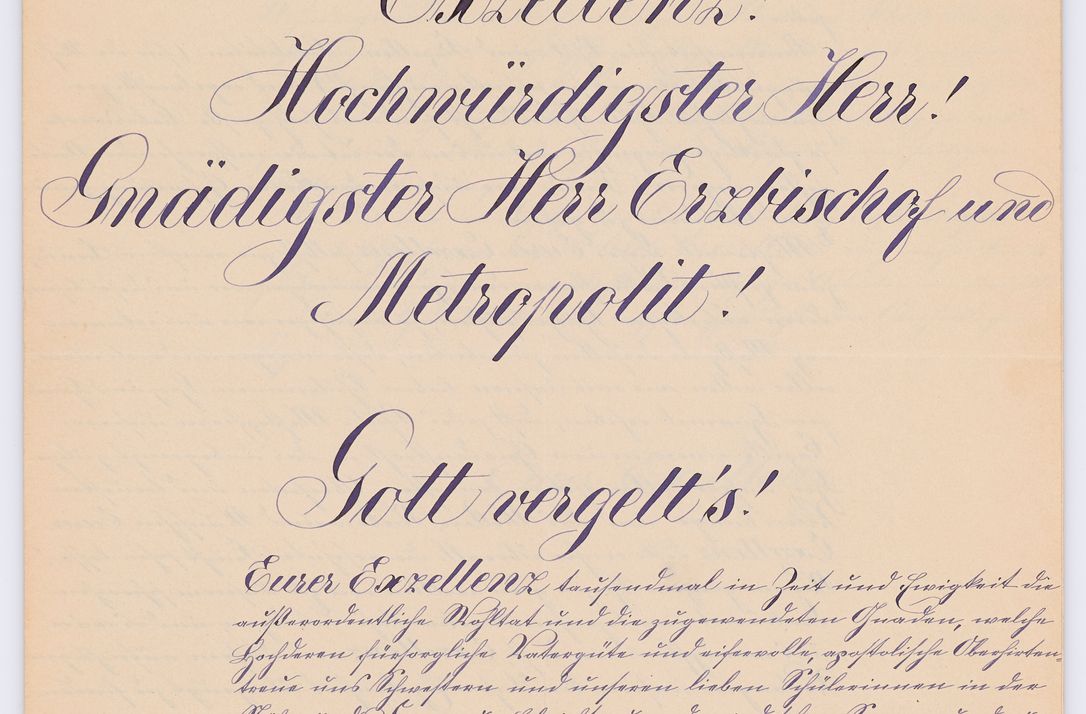 Exzellenz!
Hochwürdigster Herr!
Gnädigster Herr Erzbischof und
Metropolit!
Gott vergelt's!
Eurer Exzellenz tausendmal in Zeit und Ewigkeit die
außerordentliche Wohltat und die zugewendeten Gnaden, welche
Hochderen fürsorgliche Vatergüte und eifervolle, apostolische Oberhirten-
treue uns Schwestern und unseren lieben Schülerinnen in der